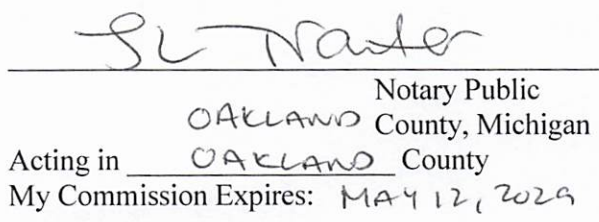 Notary Public
OAKLAND County, Michigan
Acting in OAKLAND County
My Commission Expires: MAY 12, 2029